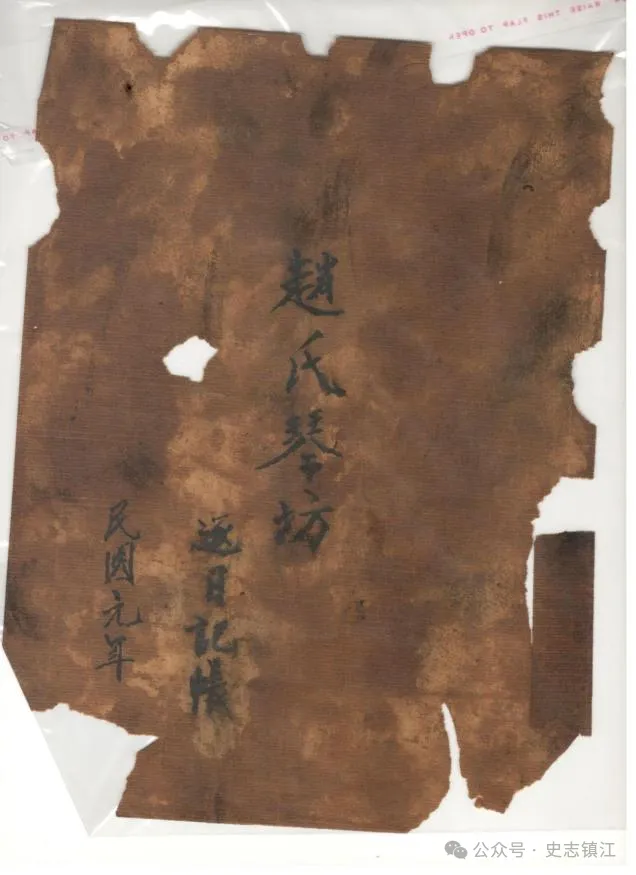 RAISE THIS FLAP TO OPEN
趙氏琴坊
逐日記帳
民國元年
公众号 · 史志镇江